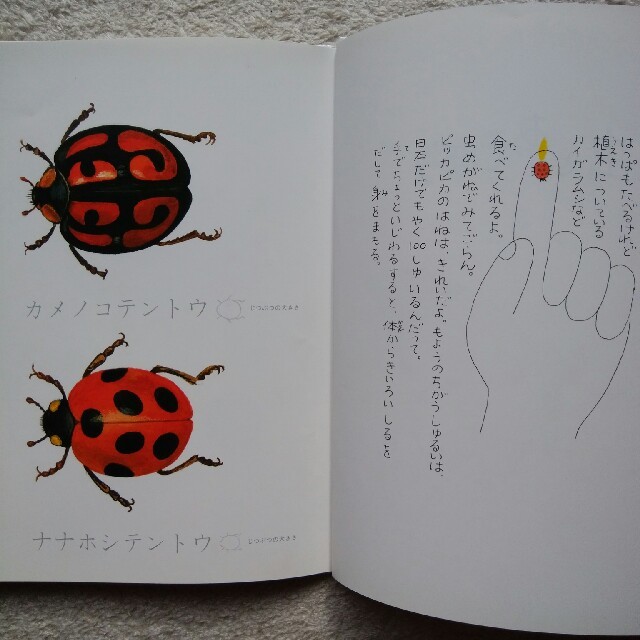 カメノコテントウ
じつぶつの大きさ
ナナホシテントウ
じつぶつの大きさ
はっぱもたべるけれど
植木についている
カイガラムシなど
食べてくれるよ。
虫めがねでみてごらん。
ピカピカのはねは、きれいだよ。もようのちがうしゅるいは、
日本だけでもやく100しゅいるんだって。
手でちょっといじわるすると、体からきいろいしるを
だして身をまもる。